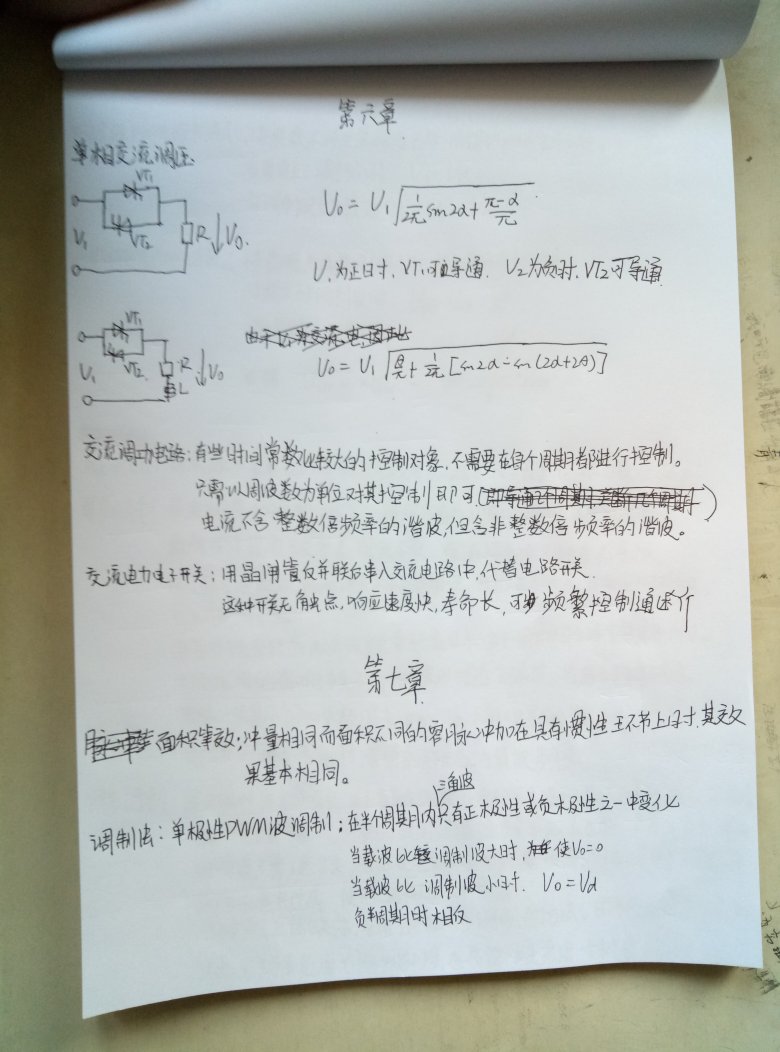 第六章
单相交流调压
VT1
VT2
U1
R
U0
U0 = U1 √(1/2π sin2α + (π-α)/π)
U1为正日寸, VT1可导通. U2为负时, VT2可导通
VT1
VT2
U1
R
L
U0
U0 = U1 √(θ/π + 1/2π [sin2α - sin(2α+2θ)])
交流调功电路: 有些时间常数比较大的控制对象, 不需要在每个周期都进行控制。
只需以周波数为单位对其控制即可
电流不含整数倍频率的谐波, 但含非整数倍频率的谐波。
交流电力电子开关: 用晶闸管反并联后串入交流电路中, 代替电路开关.
这种开关无触点, 响应速度快, 寿命长, 可频繁控制通断
第七章
面积等效: 冲量相同而面积不同的窄脉冲加在具有惯性环节上时, 其效
果基本相同。
三角波
调制法: 单极性PWM波调制: 在半个周期内只有正极性或负极性之一中变化
当载波比调制波大时, 使U0=0
当载波比调制波小时. U0=Ud
负半周期时相反